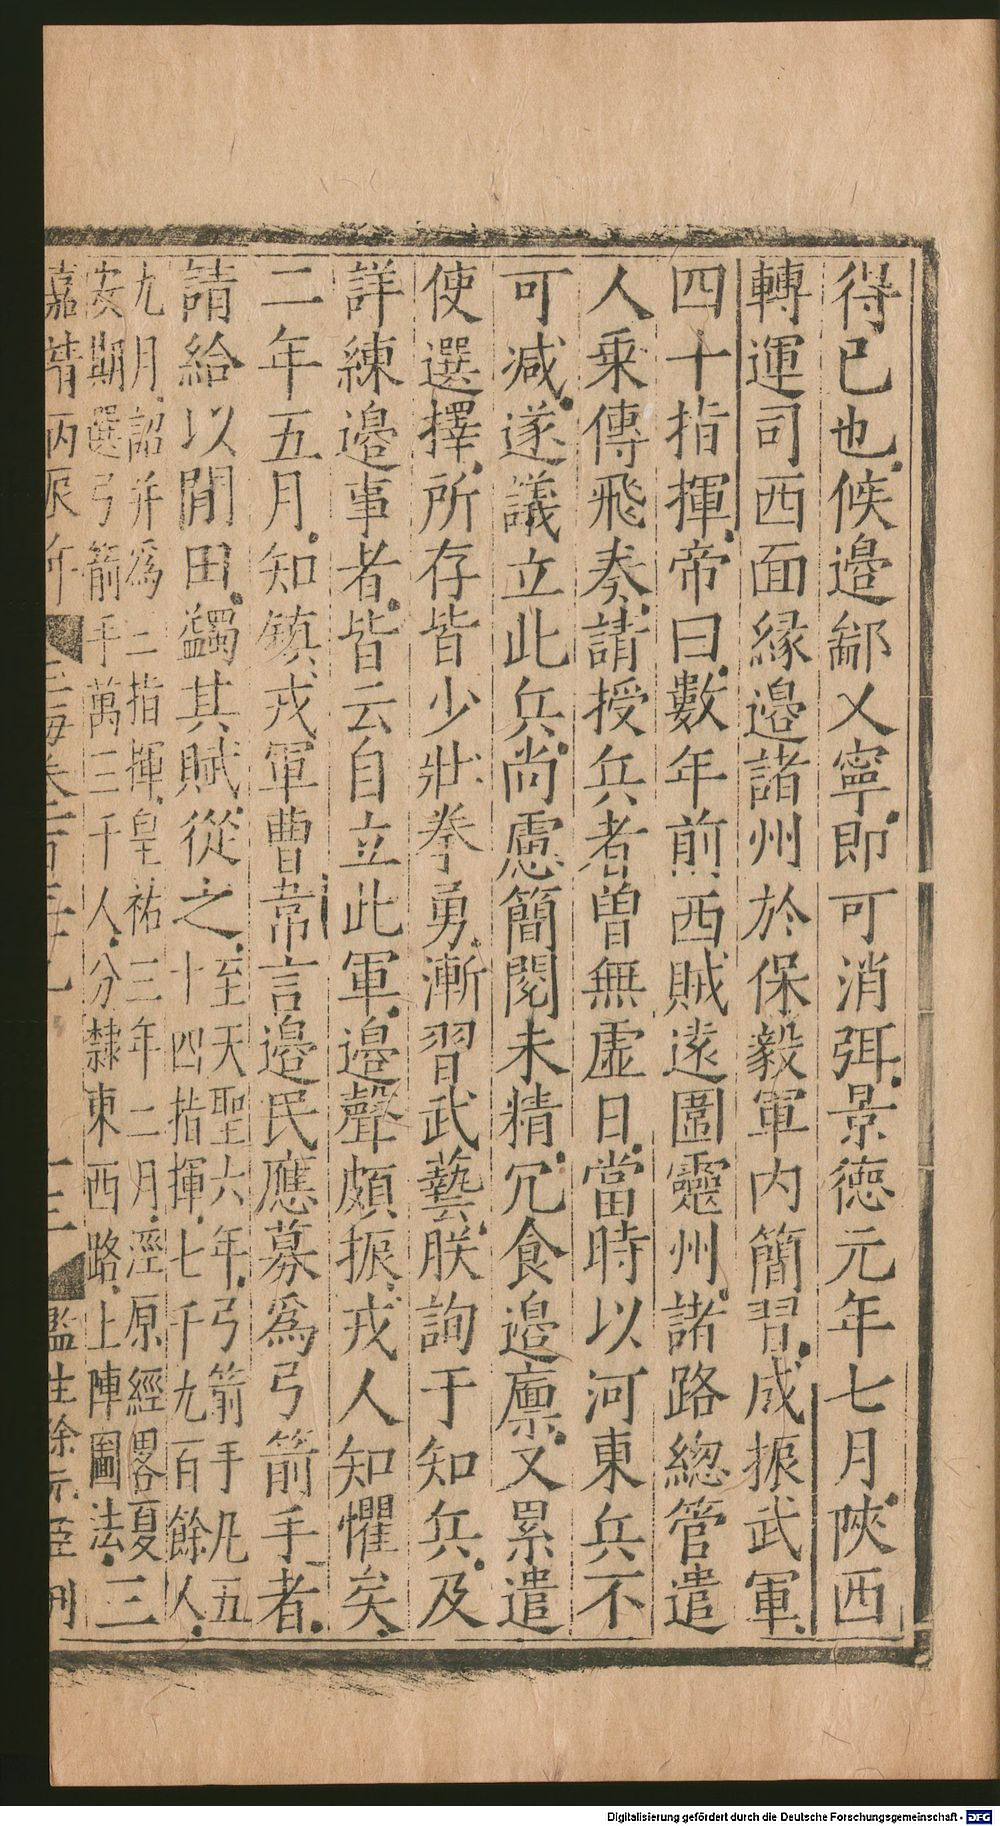 得已也候邉鄙乂寧即可消弭景德元年七月陜西
轉運司西面緣邉諸州於保毅軍内簡習成振武軍
四十指揮帝曰數年前西賊遠圖靈州諸路總管遣
人乗傳飛奏請授兵者曽無虚日當時以河東兵不
可减遂議立此兵尚慮簡閱未精冗食邉廪又累遣
使選擇所存皆少壯拳勇漸習武藝朕詢于知兵及
詳練邉事者皆云自立此軍邉聲頗振戎人知懼矣
二年五月知鎮戎軍曹瑋言邉民應募為弓箭手者
請給以閒田蠲其賦從之
至天聖六年弓箭手凡五
十四指揮七千九百餘人
九月詔并為二指揮皇祐三年二月涇原經畧夏
安期選弓箭手萬三千人分隸東西路上陣圖法
三
嘉靖丙辰年
監生徐元 刋
Digitalisierung gefördert durch die Deutsche Forschungsgemeinschaft - DFG